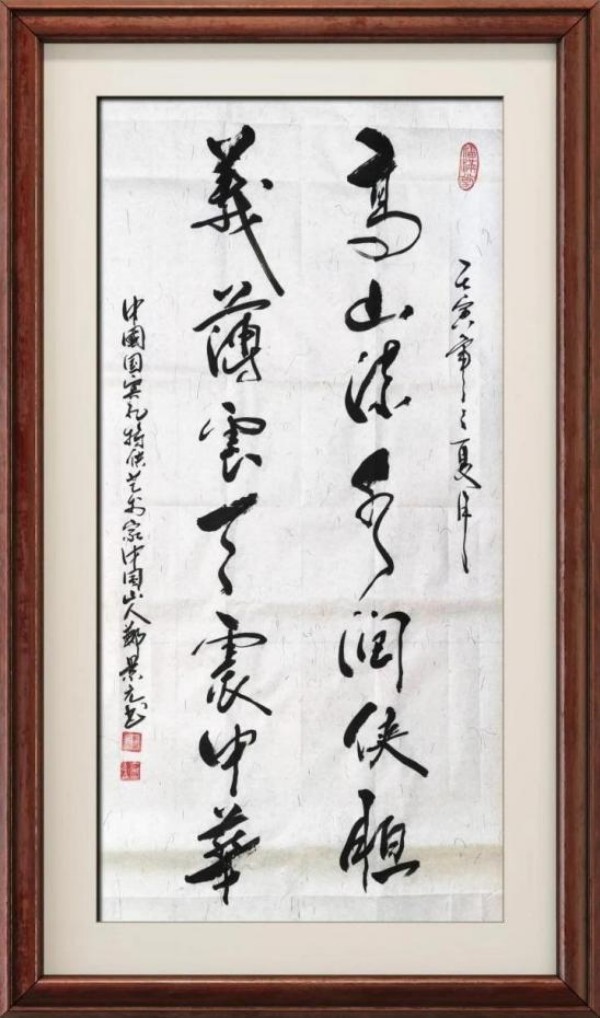 壬寅年之夏月
高山流水润侠胆
義薄雲天震中華
中國国宾礼特供艺术家中国山人郑景元书